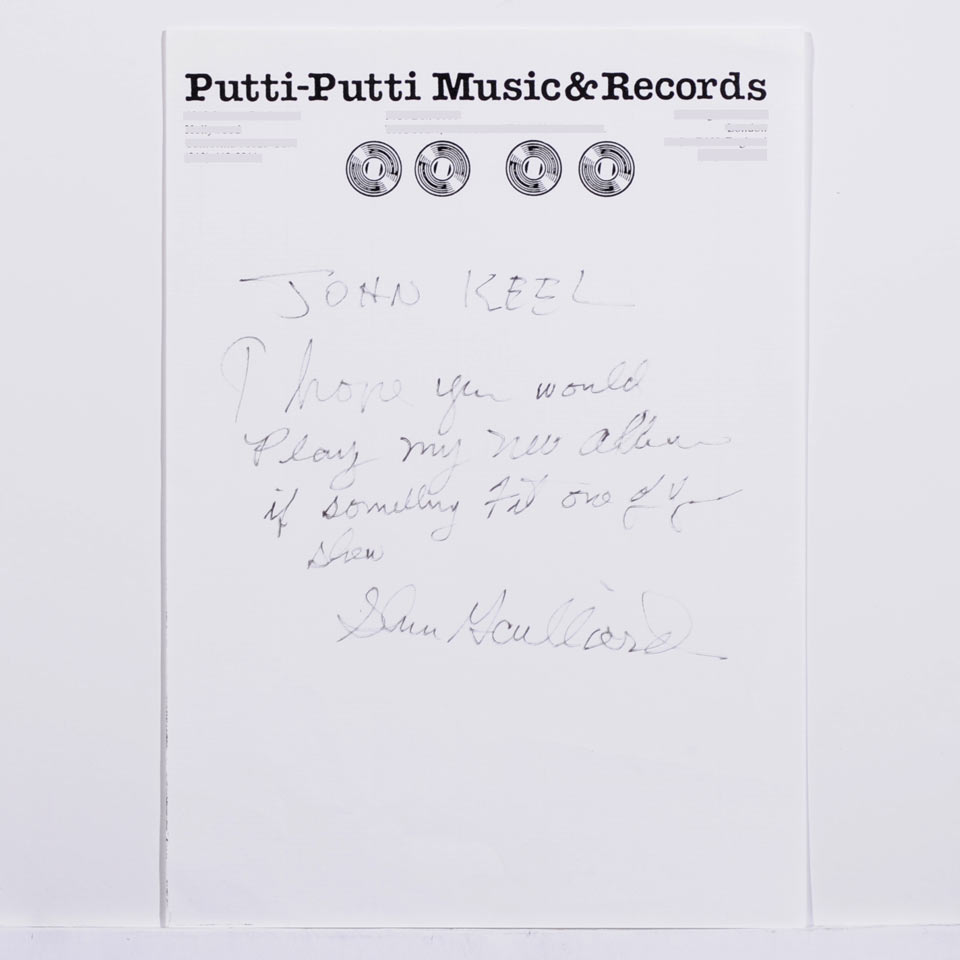 Putti-Putti Music&Records
Hollywood
London
JOHN KEEL
I hope you would
Play my new album
if something Fit one of your
show
Slim Gaillard